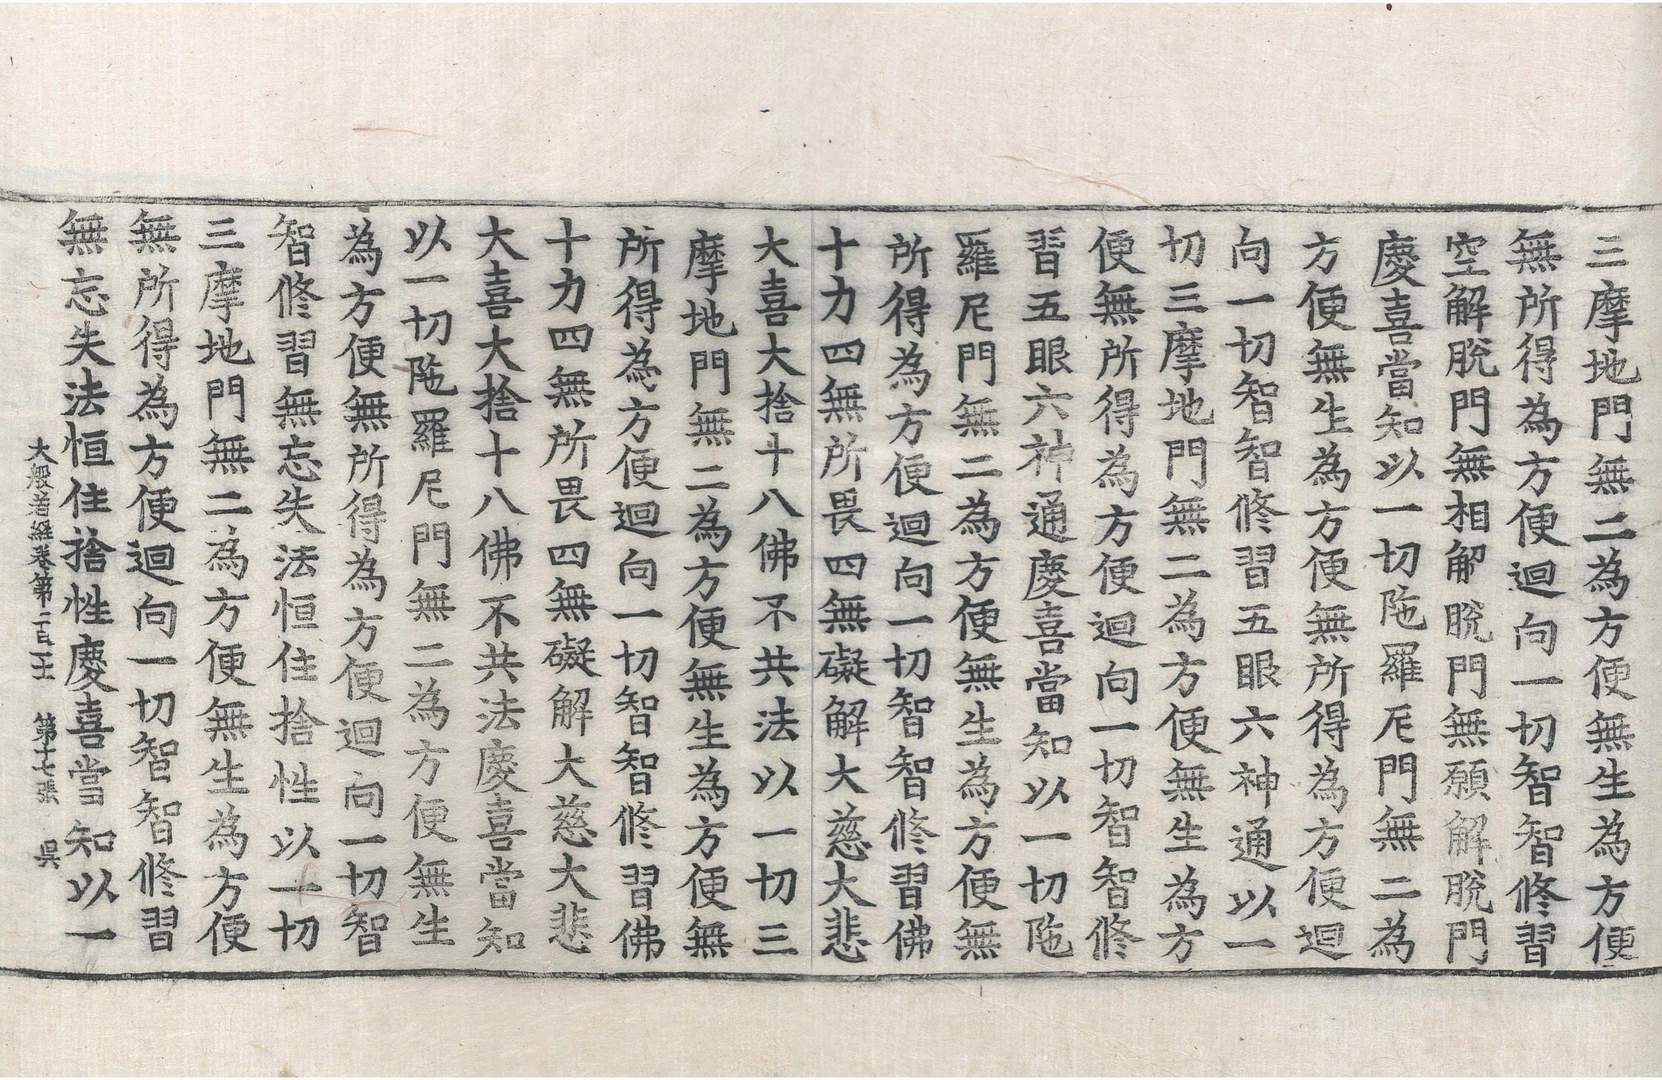 三摩地門無二為方便無生為方便
無所得為方便迴向一切智智修習
空解脫門無相解脫門無願解脫門
慶喜當知以一切陁羅尼門無二為
方便無生為方便無所得為方便迴
向一切智智修習五眼六神通以一
切三摩地門無二為方便無生為方
便無所得為方便迴向一切智智修
習五眼六神通慶喜當知以一切陁
羅尼門無二為方便無生為方便無
所得為方便迴向一切智智修習佛
十力四無所畏四無礙解大慈大悲
大喜大捨十八佛不共法以一切三
摩地門無二為方便無生為方便無
所得為方便迴向一切智智修習佛
十力四無所畏四無礙解大慈大悲
大喜大捨十八佛不共法慶喜當知
以一切陁羅尼門無二為方便無生
為方便無所得為方便迴向一切智
智修習無忘失法恒住捨性以一切
三摩地門無二為方便無生為方便
無所得為方便迴向一切智智修習
無忘失法恒住捨性慶喜當知以一
大般若經卷第一百二十 第十七張 吳